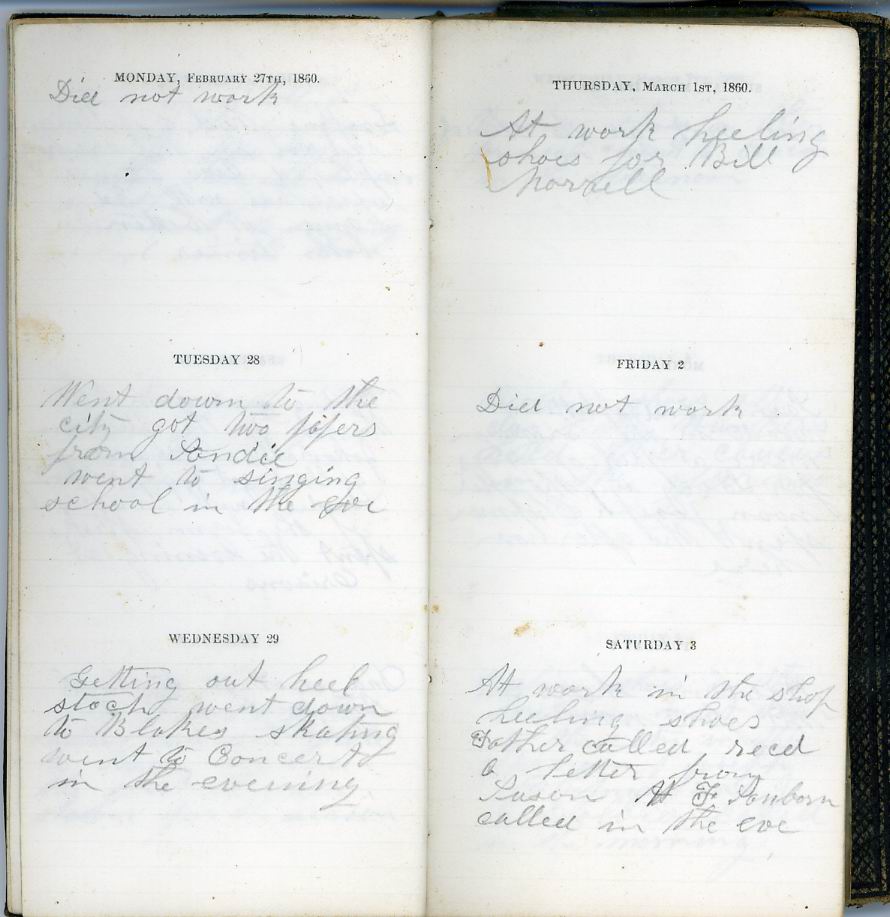 MONDAY, FEBRUARY 27TH, 1860.
Did not work
TUESDAY 28
Went down to the
city got two papers
from Pondie
went to singing
school in the eve
WEDNESDAY 29
Getting out heel
stock went down
to Blakes skating
went to Concert
in the evening
THURSDAY, MARCH 1ST, 1860.
At work heeling
shoes for Bill
Morrell
FRIDAY 2
Did not work
SATURDAY 3
At work in the shop
heeling shoes
Father called recd
a letter from
Susan H F Sanborn
called in the eve